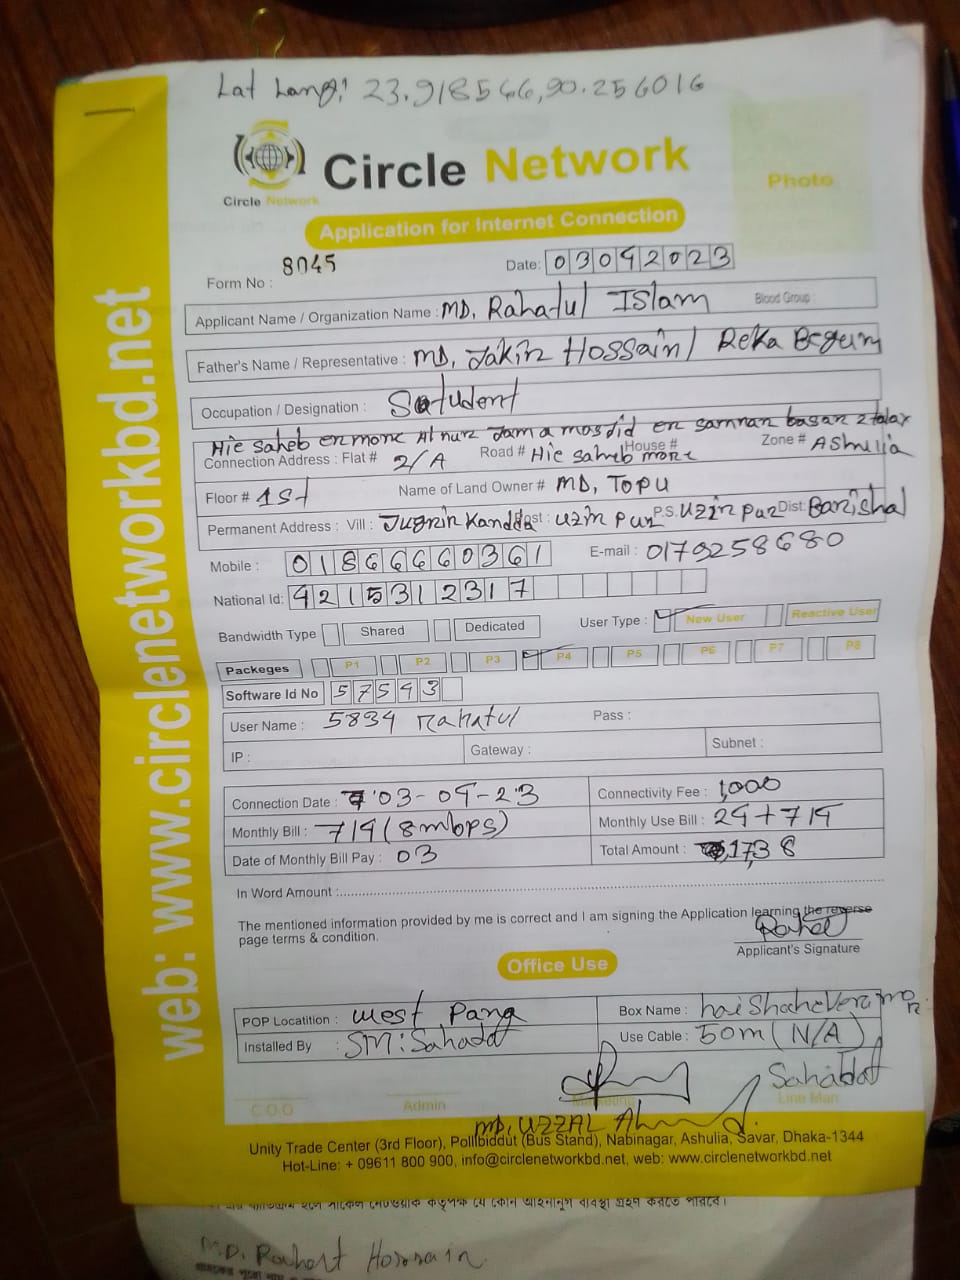 Lat Lang: 23.918546,90.256016
Circle Network
Circle Network
Photo
Application for Internet Connection
Form No : 8045
Date: 03042023
Applicant Name / Organization Name : MD. Rahatul Islam Blood Group :
Father's Name / Representative : MD. Jakir Hossain / Reka Begum
Occupation / Designation : Satudent
Hie saheb er more Al nur Jama mosdid er samnan basar 2 talar
Connection Address : Flat # 2/A Road # Hie saheb more House # Zone # Ashulia
Floor # 1st Name of Land Owner # MD, TOPU
Permanent Address : Vill : Post : uzir pur P.S. uzir pur Dist: Barishal
Mobile : 01866660361 E-mail : 0179258680
National Id: 4215312317
Bandwidth Type Shared Dedicated User Type : New User Reactive User
Packeges P1 P2 P3 P4 P5 P6 P7 P8
Software Id No 57543
User Name : 5834 Rahatul Pass :
IP : Gateway : Subnet :
Connection Date : 03-04-23 Connectivity Fee : 1,000
Monthly Bill : 714 (8mbps) Monthly Use Bill : 24+714
Date of Monthly Bill Pay : 03 Total Amount : 1738
In Word Amount :
The mentioned information provided by me is correct and I am signing the Application learning the reverse
page terms & condition.
Rahat
Applicant's Signature
Office Use
POP Locatition : west Para Box Name : hai
Installed By : SM: Sahadat Use Cable : 50m (N/A)
Sahadat
C.O.O Admin Marketing Line Man
MD. UZZAL
Unity Trade Center (3rd Floor), Pollibiddut (Bus Stand), Nabinagar, Ashulia, Savar, Dhaka-1344
Hot-Line: + 09611 800 900, info@circlenetworkbd.net, web: www.circlenetworkbd.net
web: www.circlenetworkbd.net
কর্তৃপক্ষ যে কোন আইনানুগ ব্যবস্থা গ্রহণ করতে পারবে।
MD. Rahat Hossain.